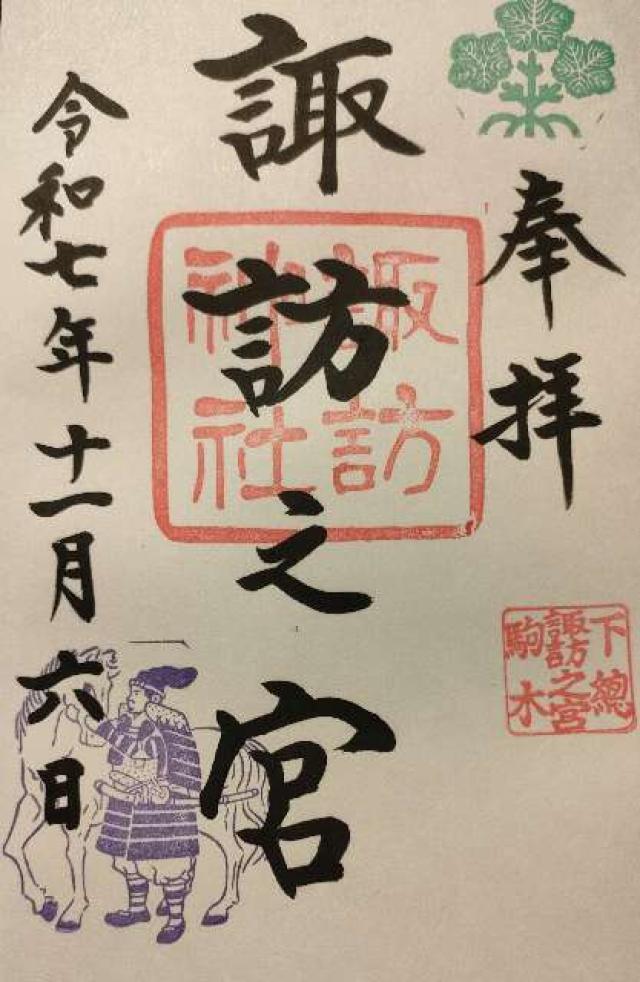 奉拝
諏訪之宮
諏訪
神社
下總
諏訪之宮
駒木
令和七年十一月六日